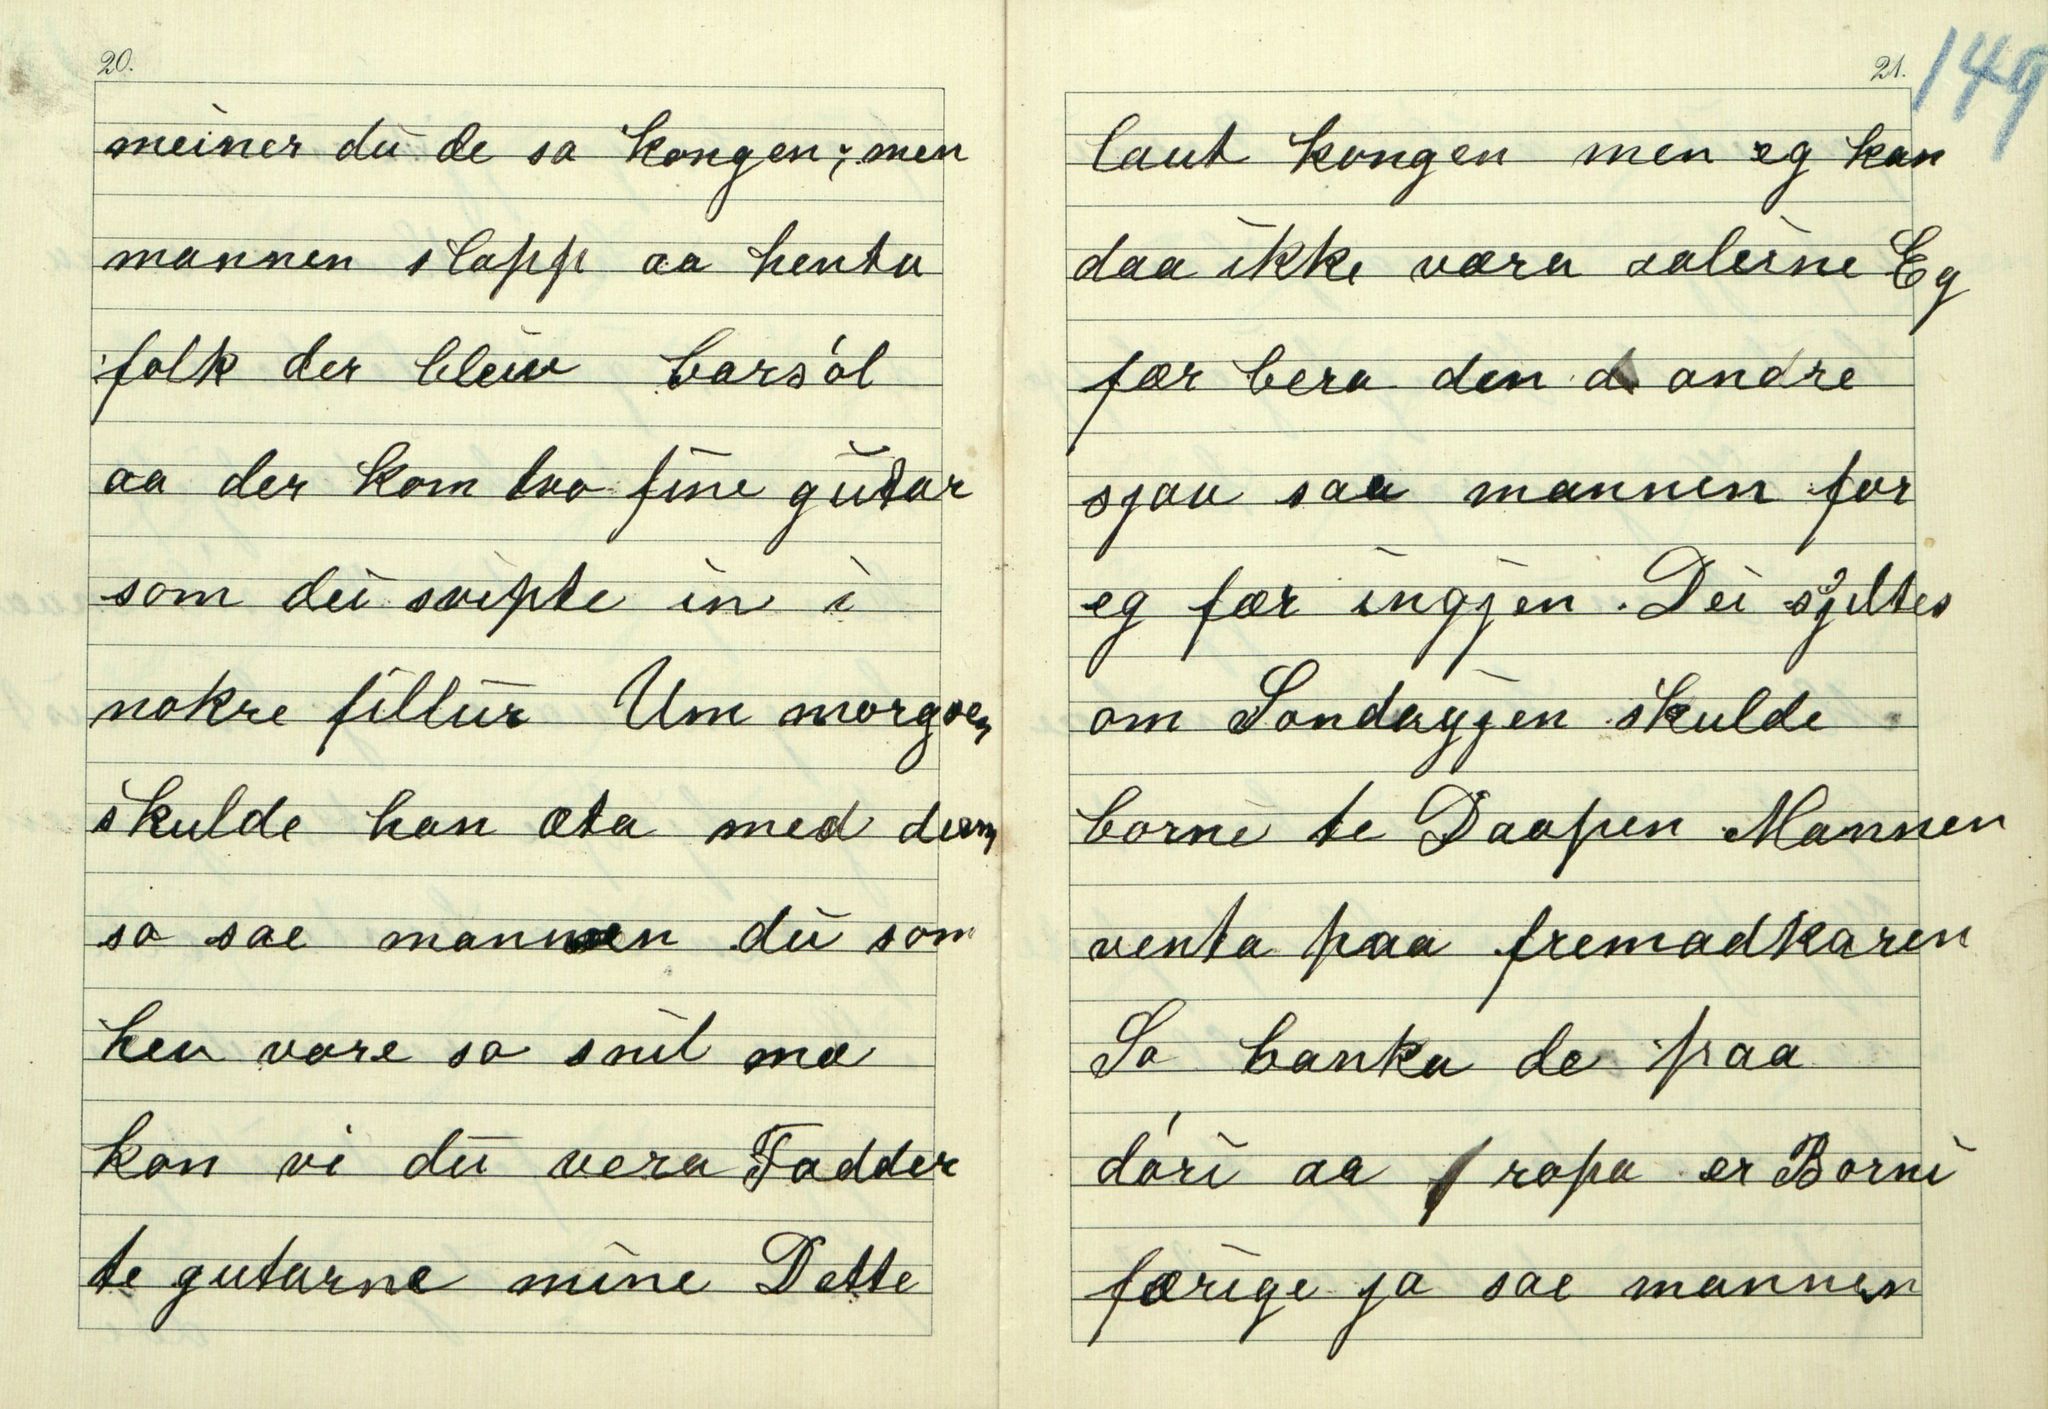 20.
meiner du de sa kongen; men
mannen slapp aa henta
folk der bleiv barsól
aa der kom two fine gutar
som dei svipte in i
nokre fillur Um morgoen
skulde han æta med deim
so sae mannen du som
hev vore so snil mæ
kan vi du vera Fadder
te gutarne mine Dette
21.
149
laut kongen men eg kan
daa ikke væra aaleine Eg
fær bera den andre
sjøv saa mannen for
eg fær ingjen. Dei sjiltes
om Sondagjen skulde
borni te Daapen Mannen
venta paa fremadkaren
So banka de paa
dóri aa ropa er Borni
færige ja sae mannen